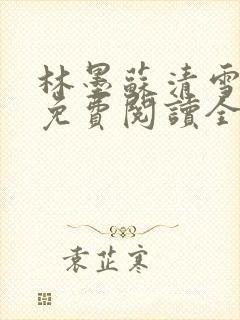 林墨蘇清雪
免費閱讀全
袁芷寒